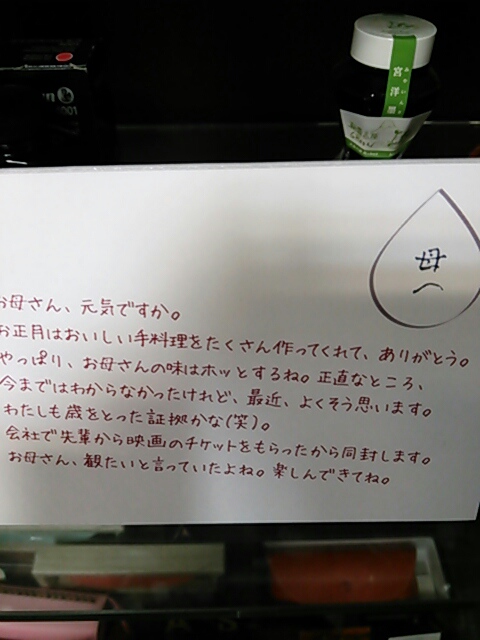 母へ
お母さん、元気ですか。
お正月はおいしい手料理をたくさん作ってくれて、ありがとう。
やっぱり、お母さんの味はホッとするね。正直なところ、
今まではわからなかったけれど、最近、よくそう思います。
わたしも歳をとった証拠かな(笑)。
会社で先輩から映画のチケットをもらったから同封します。
お母さん、観たいと言っていたよね。楽しんできてね。